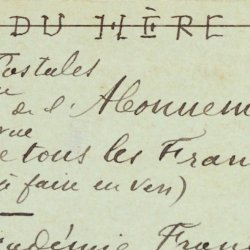 DU HÈRE
Postales
de l'Abonnem
rue
e tous les Fran
à faire en vers)
adémie Fran